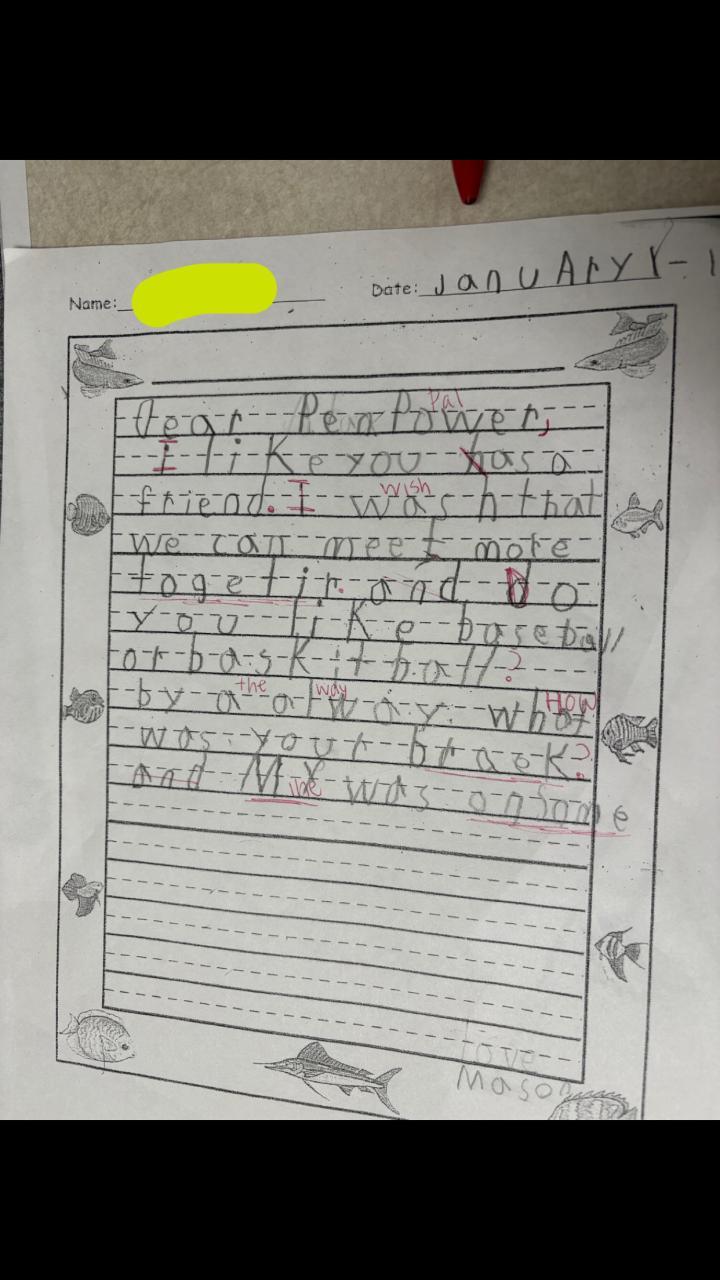 Name:
Date: JanuAry 1-1
Pal
Dear PenPower,
I like you has a
wish
friend. I wash that
we can meet more
togetir. and Do
you like baseball
or baskitball?
the way How
by a alway. what
was your braek?
and My ine was onsome
Love
Mason